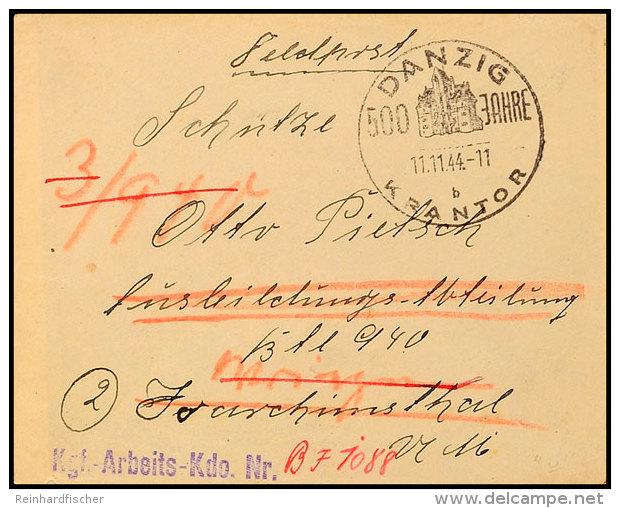 Feldpost
DANZIG
500 JAHRE
11.11.44.-11
b
KRANTOR
Schütze
3/940
Otto Pietsch
Ausbildungs-Abteilung
Btl 940
② Joachimsthal
UM
Kgf.-Arbeits-Kdo. Nr. BF 1088
Reinhardfischer
delcampe.net